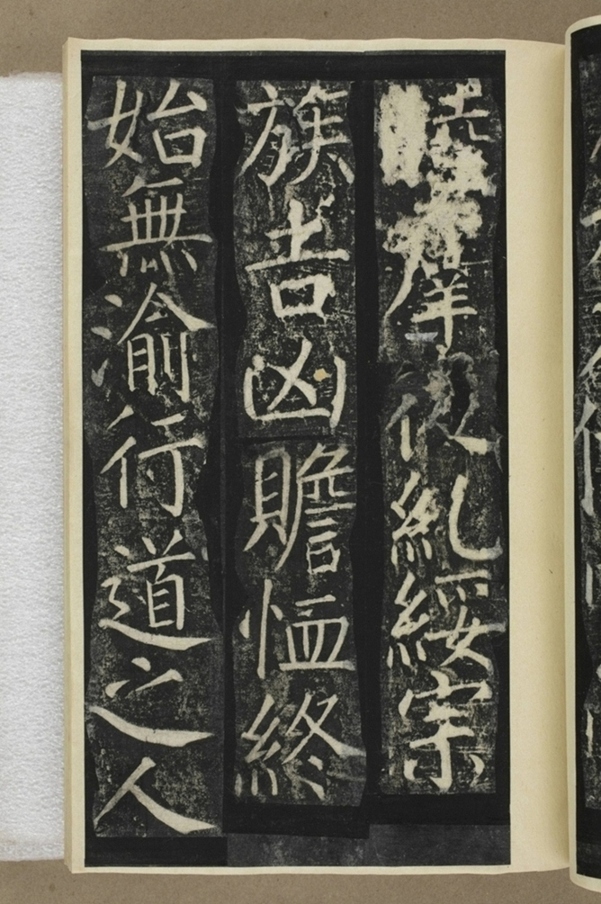 羣從糺綏宗
族吉凶贍恤終
始無渝行道之人